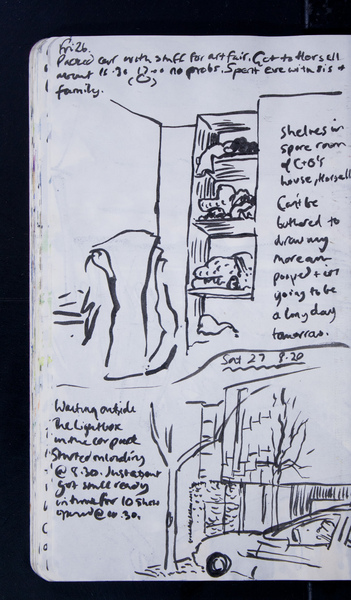 Fri 26.
Packed car with stuff for art fair. Got to Horsell
about 16.30 no probs. Spent eve with sis +
family.
Shelves in
spare room
of C+G's
house, Horsell
Can't be
bothered to
draw any
more am
+ it's
going to be
a long day
tomorrow.
Sat 27 8.20
Waiting outside
the Lightbox
in the car park
Started unloading
@ 8.30. Just about
got stall ready
in time for 10 show
opened @ 10.30.